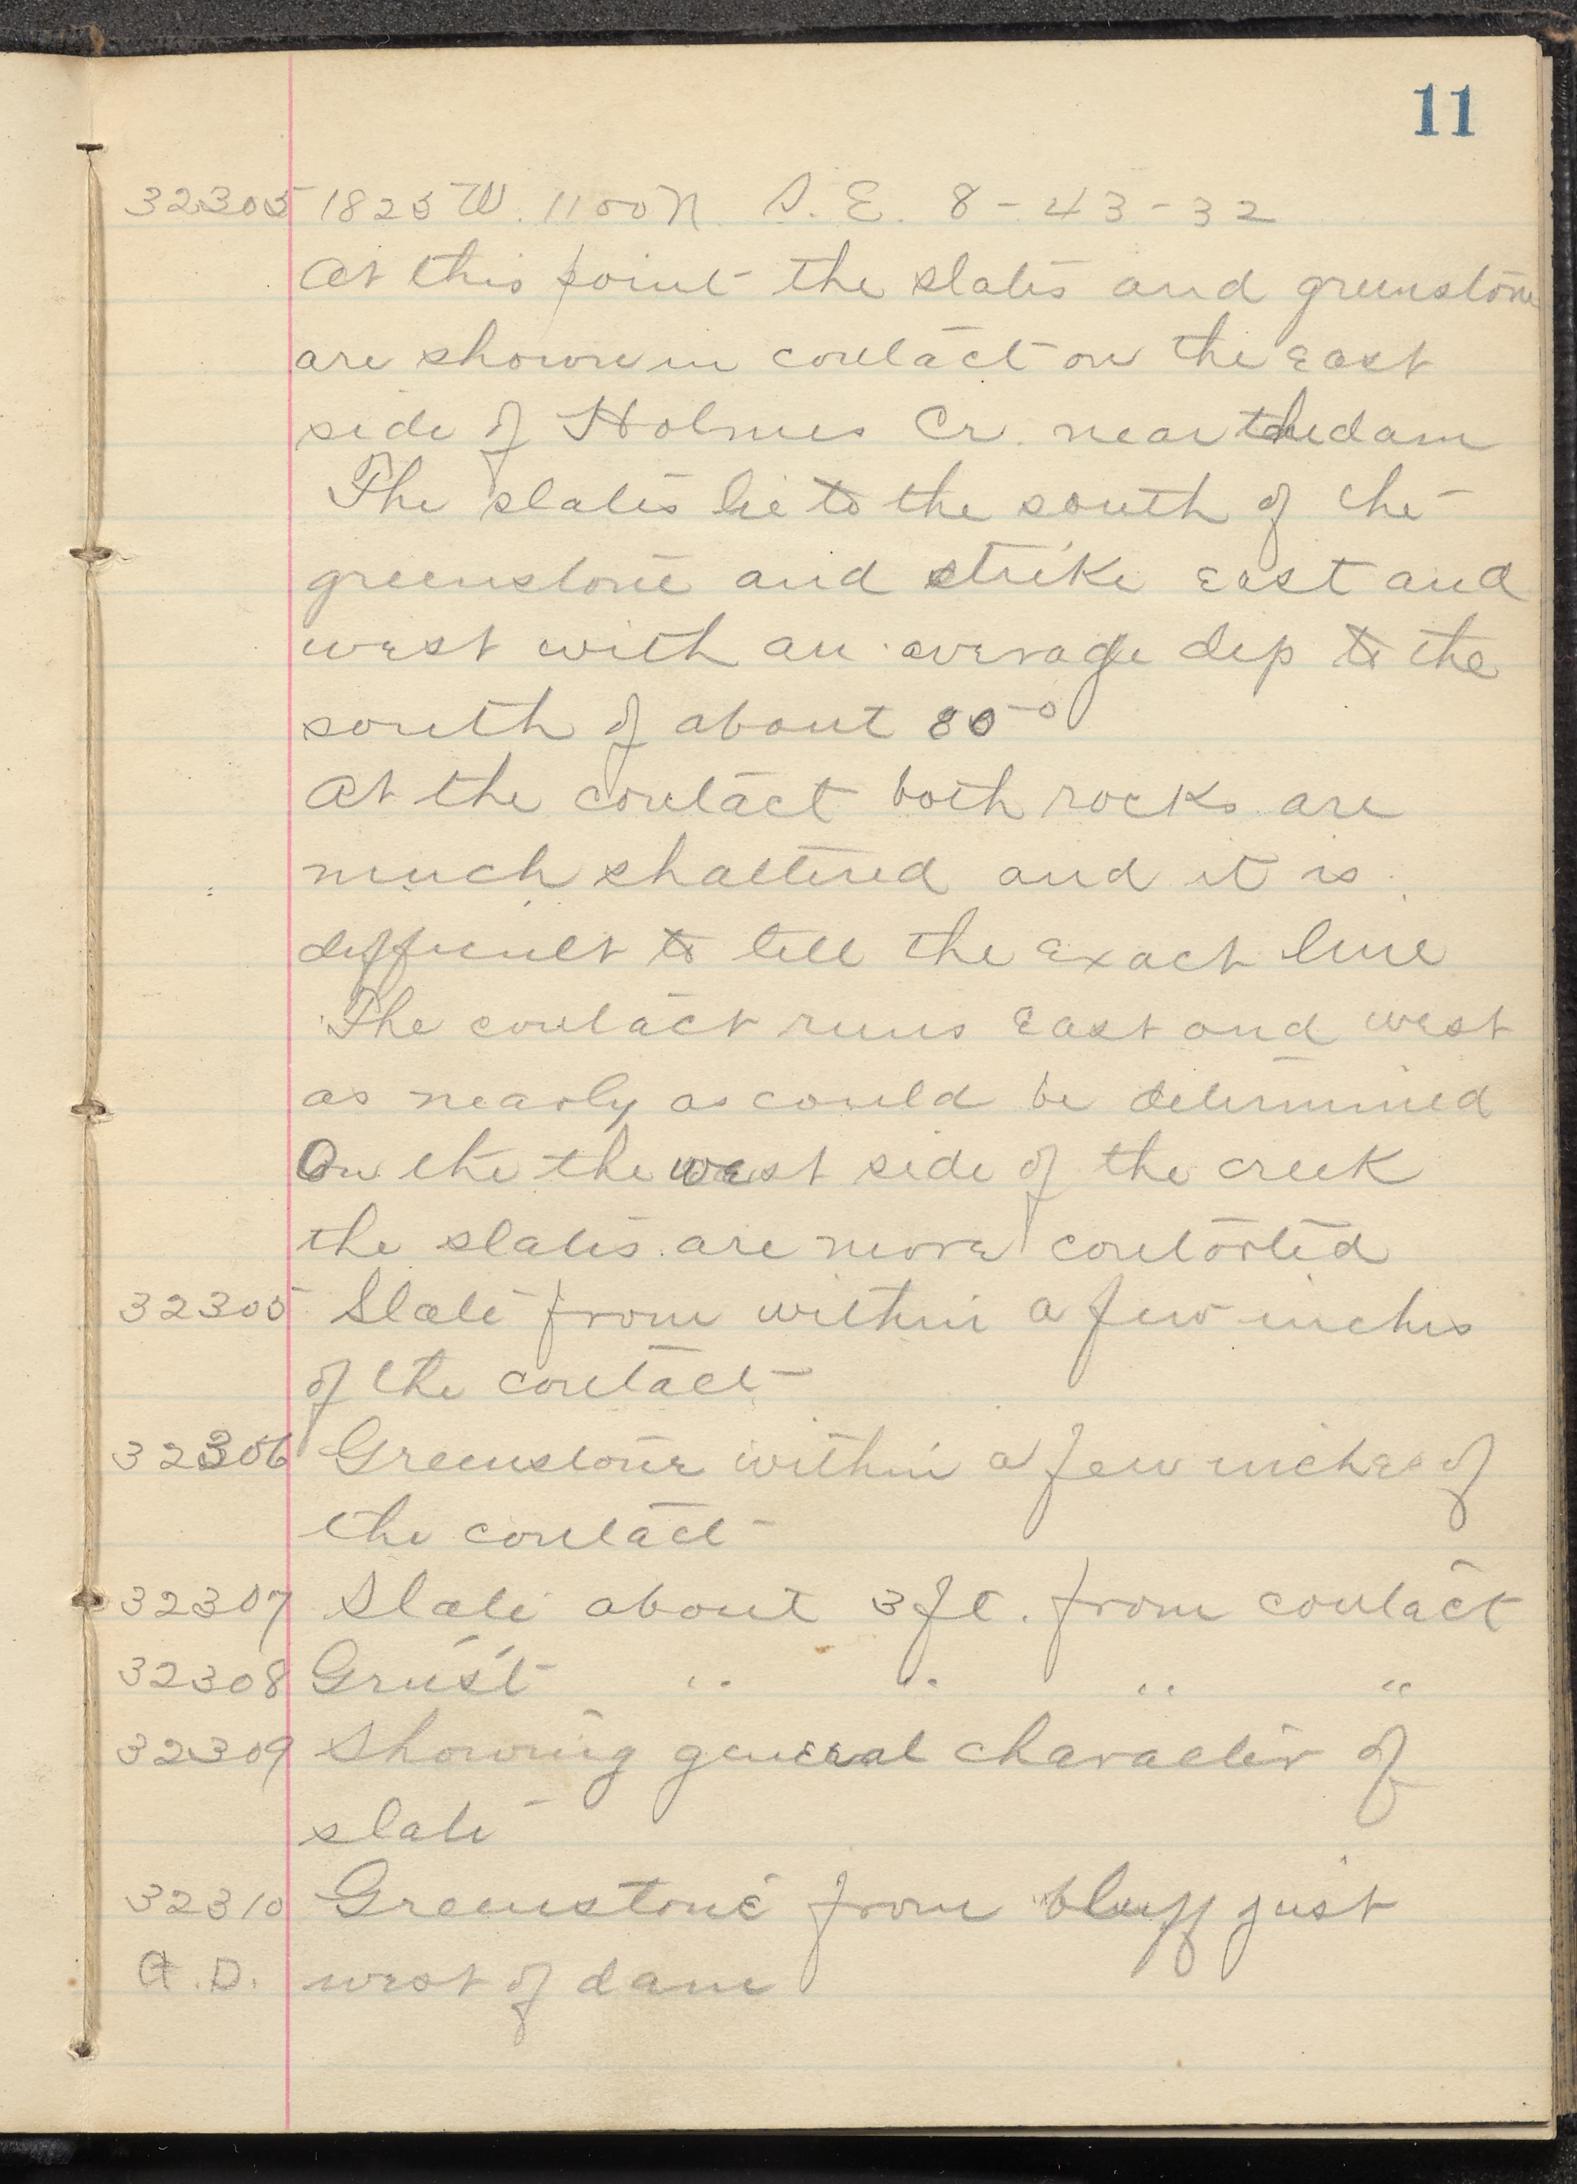 11
32305 1825 W. 1100 N. S. E. 8 - 43 - 32
At this point the slates and greenstone
are shown in contact on the east
side of Holmes Cr. near the dam
The slates lie to the south of the
greenstone and strike east and
west with an average dip to the
south of about 80°
At the contact both rocks are
much shattered and it is
difficult to tell the exact line
The contact runs East and west
as nearly as could be determined
On the the west side of the creek
the slates are more contorted
32305 Slate from within a few inches
of the contact
32306 Greenstone within a few inches of
the contact
32307 Slate about 3 ft. from contact
32308 Grnst " " " "
32309 Showing general character of
slate
32310 Greenstone from bluff just
A.D. west of dam